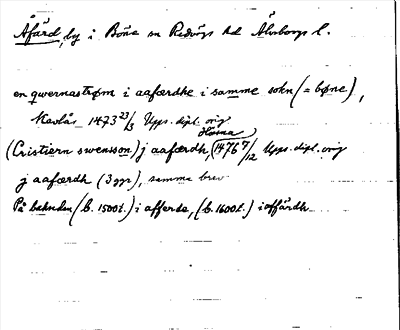 Åfärd, by i Böne sn Redvägs hd Älvsborgs l.
en qwernastrøm i aafærdhe i samme sokn (= bøne),
1473 23/3 Upps. dipl. orig
(Cristiern swenson) j aafærdh, 1476 7/12 Upps. dipl. orig
j aafærdh (3 ggr), samma brev
På baksidan (b. 1500t.) i afferde, (b. 1600t.) i offärdh